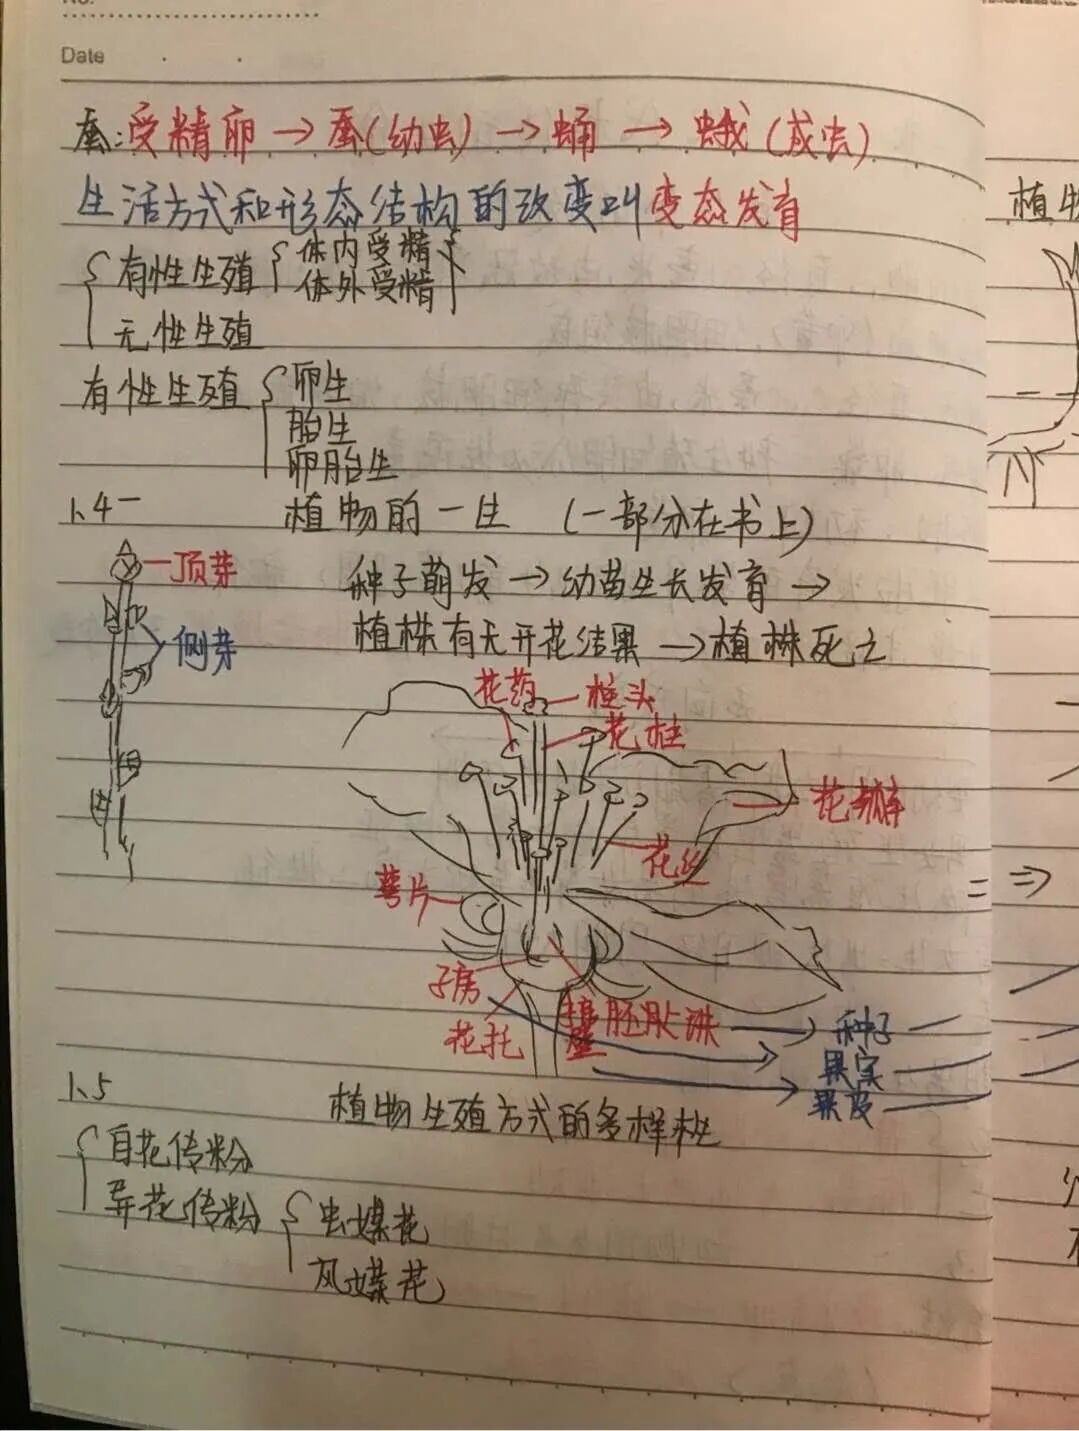 No.
Date
蚕:受精卵→蚕(幼虫)→蛹→蛾(成虫)
生活方式和形态结构的改变叫变态发育
有性生殖 体内受精
体外受精
无性生殖
有性生殖 卵生
胎生
卵胎生
1、4 植物的一生 (一部分在书上)
顶芽
侧芽
种子萌发→幼苗生长发育→
植株有无开花结果→植株死亡
花药 柱头
花柱
花瓣
花丝
萼片
子房
花托
胚珠
种子
果实
果皮
1、5 植物生殖方式的多样性
自花传粉
异花传粉 虫媒花
风媒花
植物